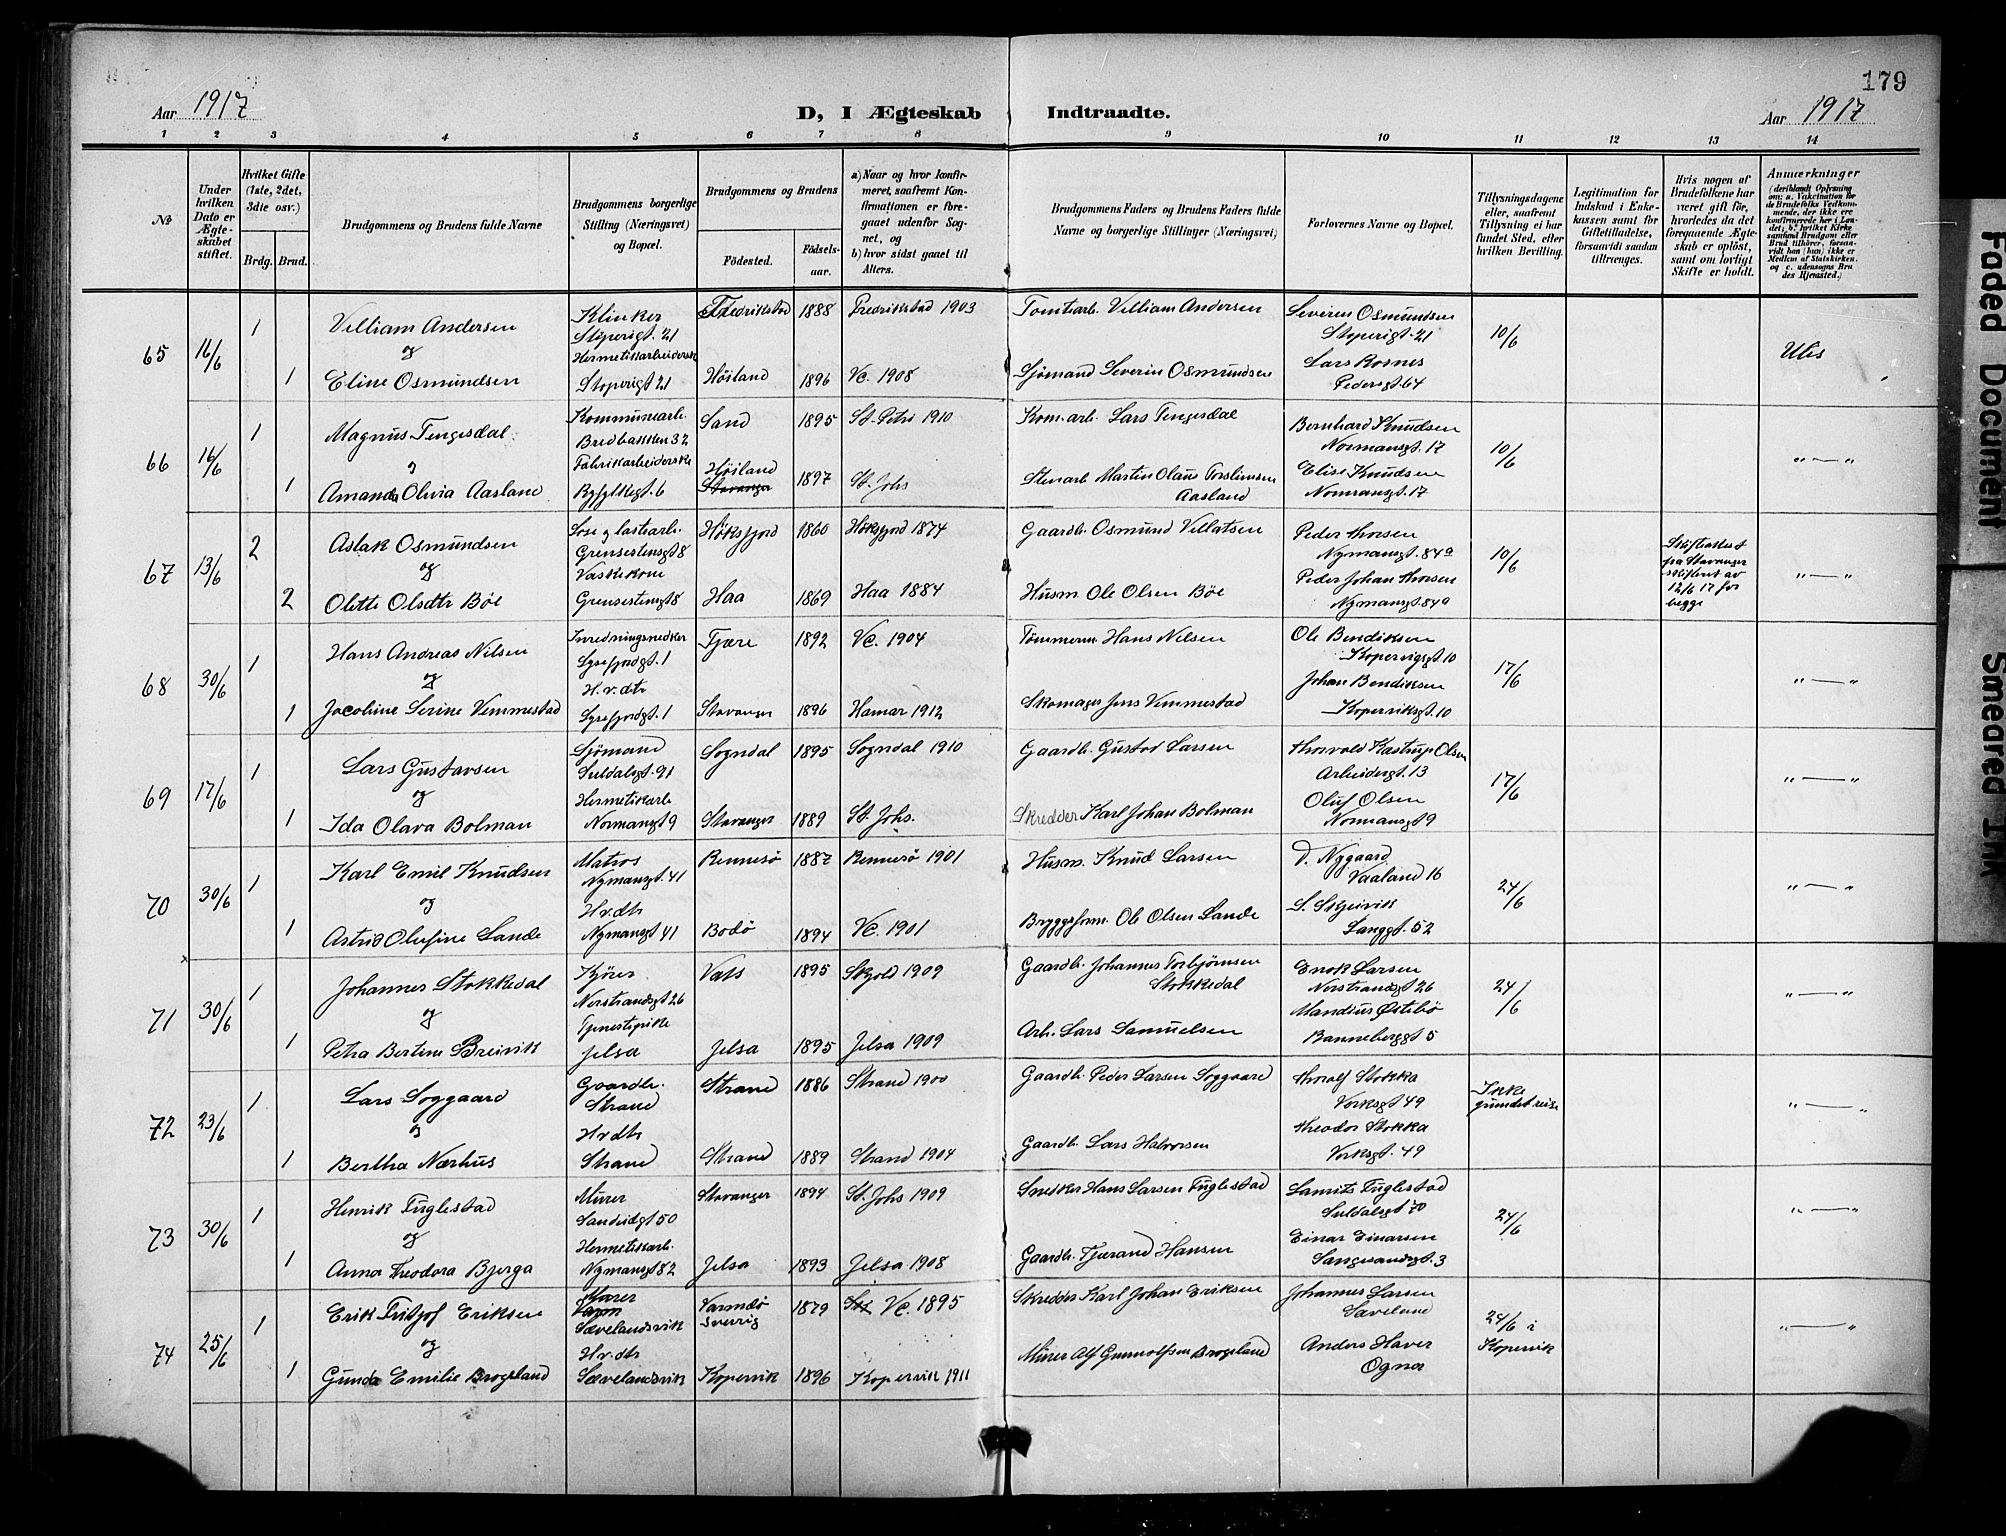 179
Aar 1917
D, I Ægteskab Indtraadte.
Aar 1917
1 2 3 4 5 6 7 8 9 10 11 12 13 14
№
Under hvilken Dato er Ægteskabet stiftet.
Hvilket Gifte (1ste, 2det, 3die osv.)
Brdg. Brud.
Brudgommens og Brudens fulde Navne
Brudgommens borgerlige Stilling (Næringsvei) og Bopæl.
Brudgommens og Brudens
Fødested.
Fødsels-aar.
a) Naar og hvor konfirmeret, saafremt Konfirmationen er foregaaet udenfor Sognet, og
b) hvor sidst gaaet til Alters.
Brudgommens Faders og Brudens Faders fulde Navne og borgerlige Stillinger (Næringsvei)
Forlovernes Navne og Bopæl.
Tillysningsdagene eller, saafremt Tillysning ei har fundet Sted, efter hvilken Bevilling.
Legitimation for Indskud i Enkekassen samt for Giftetilladelse, forsaavidt saadan tiltrænges.
Hvis nogen af Brudefolkene har været gift før, hvorledes da det foregaaende Ægteskab er opløst, samt om lovligt Skifte er holdt.
Anmerkninger
65 16/6 1 Villiam Andersen Klinker Fredrikstad 1888 Fredrikstad 1903 Tomtarb. Villiam Andersen Severin Osmundsen 10/6 Ulis
og Støperigt. 21 Støperigt. 21
Hermetikarbeiderske Lars Rosnes
1 Eline Osmundsen Støperigt 21 Høiland 1896 Vc. 1908 Sjømand Severin Osmundsen Pedersgt 64
66 16/6 1 Magnus Tengesdal Kommunearb. Sand 1895 St. Petri 1910 Kom.arb. Lars Tengesdal Bernhard Knudsen 10/6 " — "
Bredbakken 32 Normansgt. 17
Fabrikarbeiderske Høiland Elise Knudsen
1 Amanda Olivia Aasland Ryfylkegt. 6 Stavanger 1897 St. Johs Stenarb. Martin Olaus Torslimsen Aasland Normansgt. 17
67 13/6 2 Aslak Osmundsen Lose og lastearb. Høksfjord 1860 Høksfjord 1874 Gaardb. Osmund Villatsen Peder Thorsen 10/6 " — "
og Grensestensgt 8 Nymansgt. 84a
Vaskekone Peder Johan Thorsen
2 Olette Olsdtr Bøe Grensestensgt 8 Haa 1869 Haa 1884 Husm Ole Olsen Bøe Nymansgt. 84a
Skifteattest fra Stavanger skifteret av 12/6 17 for begge
68 30/6 1 Hans Andreas Nilsen Inredningsnedker Tjære 1892 Vc. 1904 Tømmerm Hans Nilsen Ole Bendiksen 17/6 " — "
og Lysefjordgt. 1 Kopervigsgt. 10
H.v.dtr Johan Bendiksen
1 Jacobine Serine Vemmestad Lysefjordgt. 1 Stavanger 1896 Hamar 1912 Skomager Jens Vemmestad Koperviksgt. 10
69 17/6 1 Lars Gustavsen Sjømand Sogndal 1895 Sogndal 1910 Gaardb. Gustav Larsen Thorvald Kastrup Olsen 17/6 " — "
og Suldalsgt. 91 Arbeidergt. 13
Hermetikarb Oluf Olsen
1 Ida Olava Bolman Normansgt 9 Stavanger 1889 St. Johs. Skredder Karl Johan Bolman Normansgt 9
70 30/6 1 Karl Emil Knudsen Matros Rennesø 1887 Rennesø 1901 Husm. Knud Larsen D. Nygaard 24/6 " — "
og Nymansgt. 41 Vaaland 16
Hv.dtr S. Skjeivik
1 Astrid Olufine Sande Nymansgt 41 Bodø 1894 Vc. 1901 Bryggeform. Ole Olsen Sande Langgt. 52
71 30/6 1 Johannes Stokkedal Kjører Vats 1895 Skjold 1909 Gaardb. Johannes Torbjørnsen Stokkedal Enok Larsen 24/6 " — "
og Norstrandsgt 26 Norstrandsgt 26
Tjenestepike Mandius Østebø
1 Petra Bertine Breivik Jelsa Jelsa 1895 Jelsa 1909 Arb. Lars Samuelsen Banneberggt 5
72 23/6 1 Lars Soggaard Gaardb. Strand 1886 Strand 1900 Gaardb. Peder Larsen Soggaard Thoralf Stokka Ikke " — "
og Strand Verksgt 49
Hv.dtr Theodor Stokka
1 Bertha Nærhus Strand Strand 1889 Strand 1904 Gaardb. Lars Halvorsen Verksgt. 49
73 30/6 1 Henrik Fuglestad Murer Stavanger 1894 St. Johs 1909 Snedker Hans Larsen Fuglestad Lauritz Fuglestad 24/6 " — "
og Sandeidgt 50 Suldalsgt 70
Hermetikarb. Einar Einarsen
1 Anna Theodora Bjerga Nymansgt 82 Jelsa 1893 Jelsa 1908 Gaardb. Tjerand Hansen Sangesandsgt. 3
74 25/6 1 Erik Fritjof Eriksen Murer Varmdø Sverrig 1879 Vc. 1895 Skredder Karl Johan Eriksen Johannes Larsen 24/6 i Kopervik " — "
og Sævelandsvik Sæveland
Hv.dtr Anders Haver
1 Gunda Emilie Brogeland Sævelandsvik Kopervik 1896 Kopervik 1911 Murer Alf Gunnolfsen Brogeland Ogna
Faded Document Smeared Ink